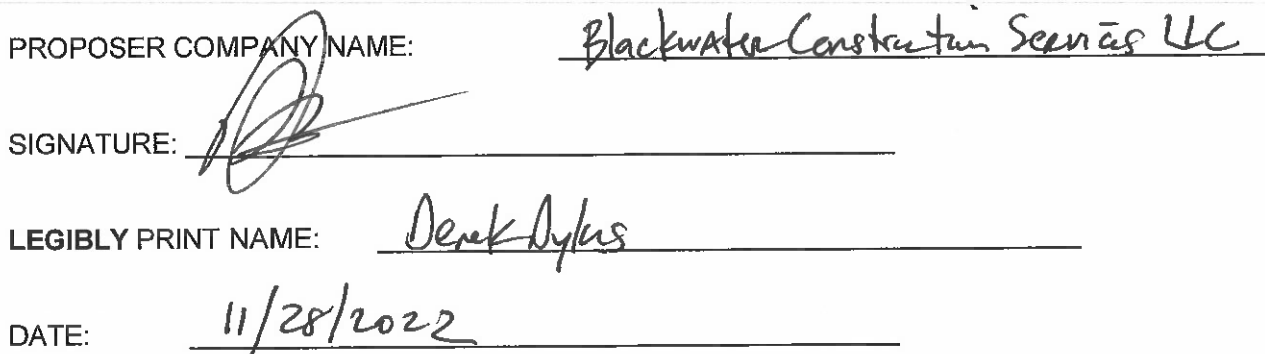 PROPOSER COMPANY NAME: Blackwater Construction Services LLC
SIGNATURE:
LEGIBLY PRINT NAME: Derek Dykes
DATE: 11/28/2022